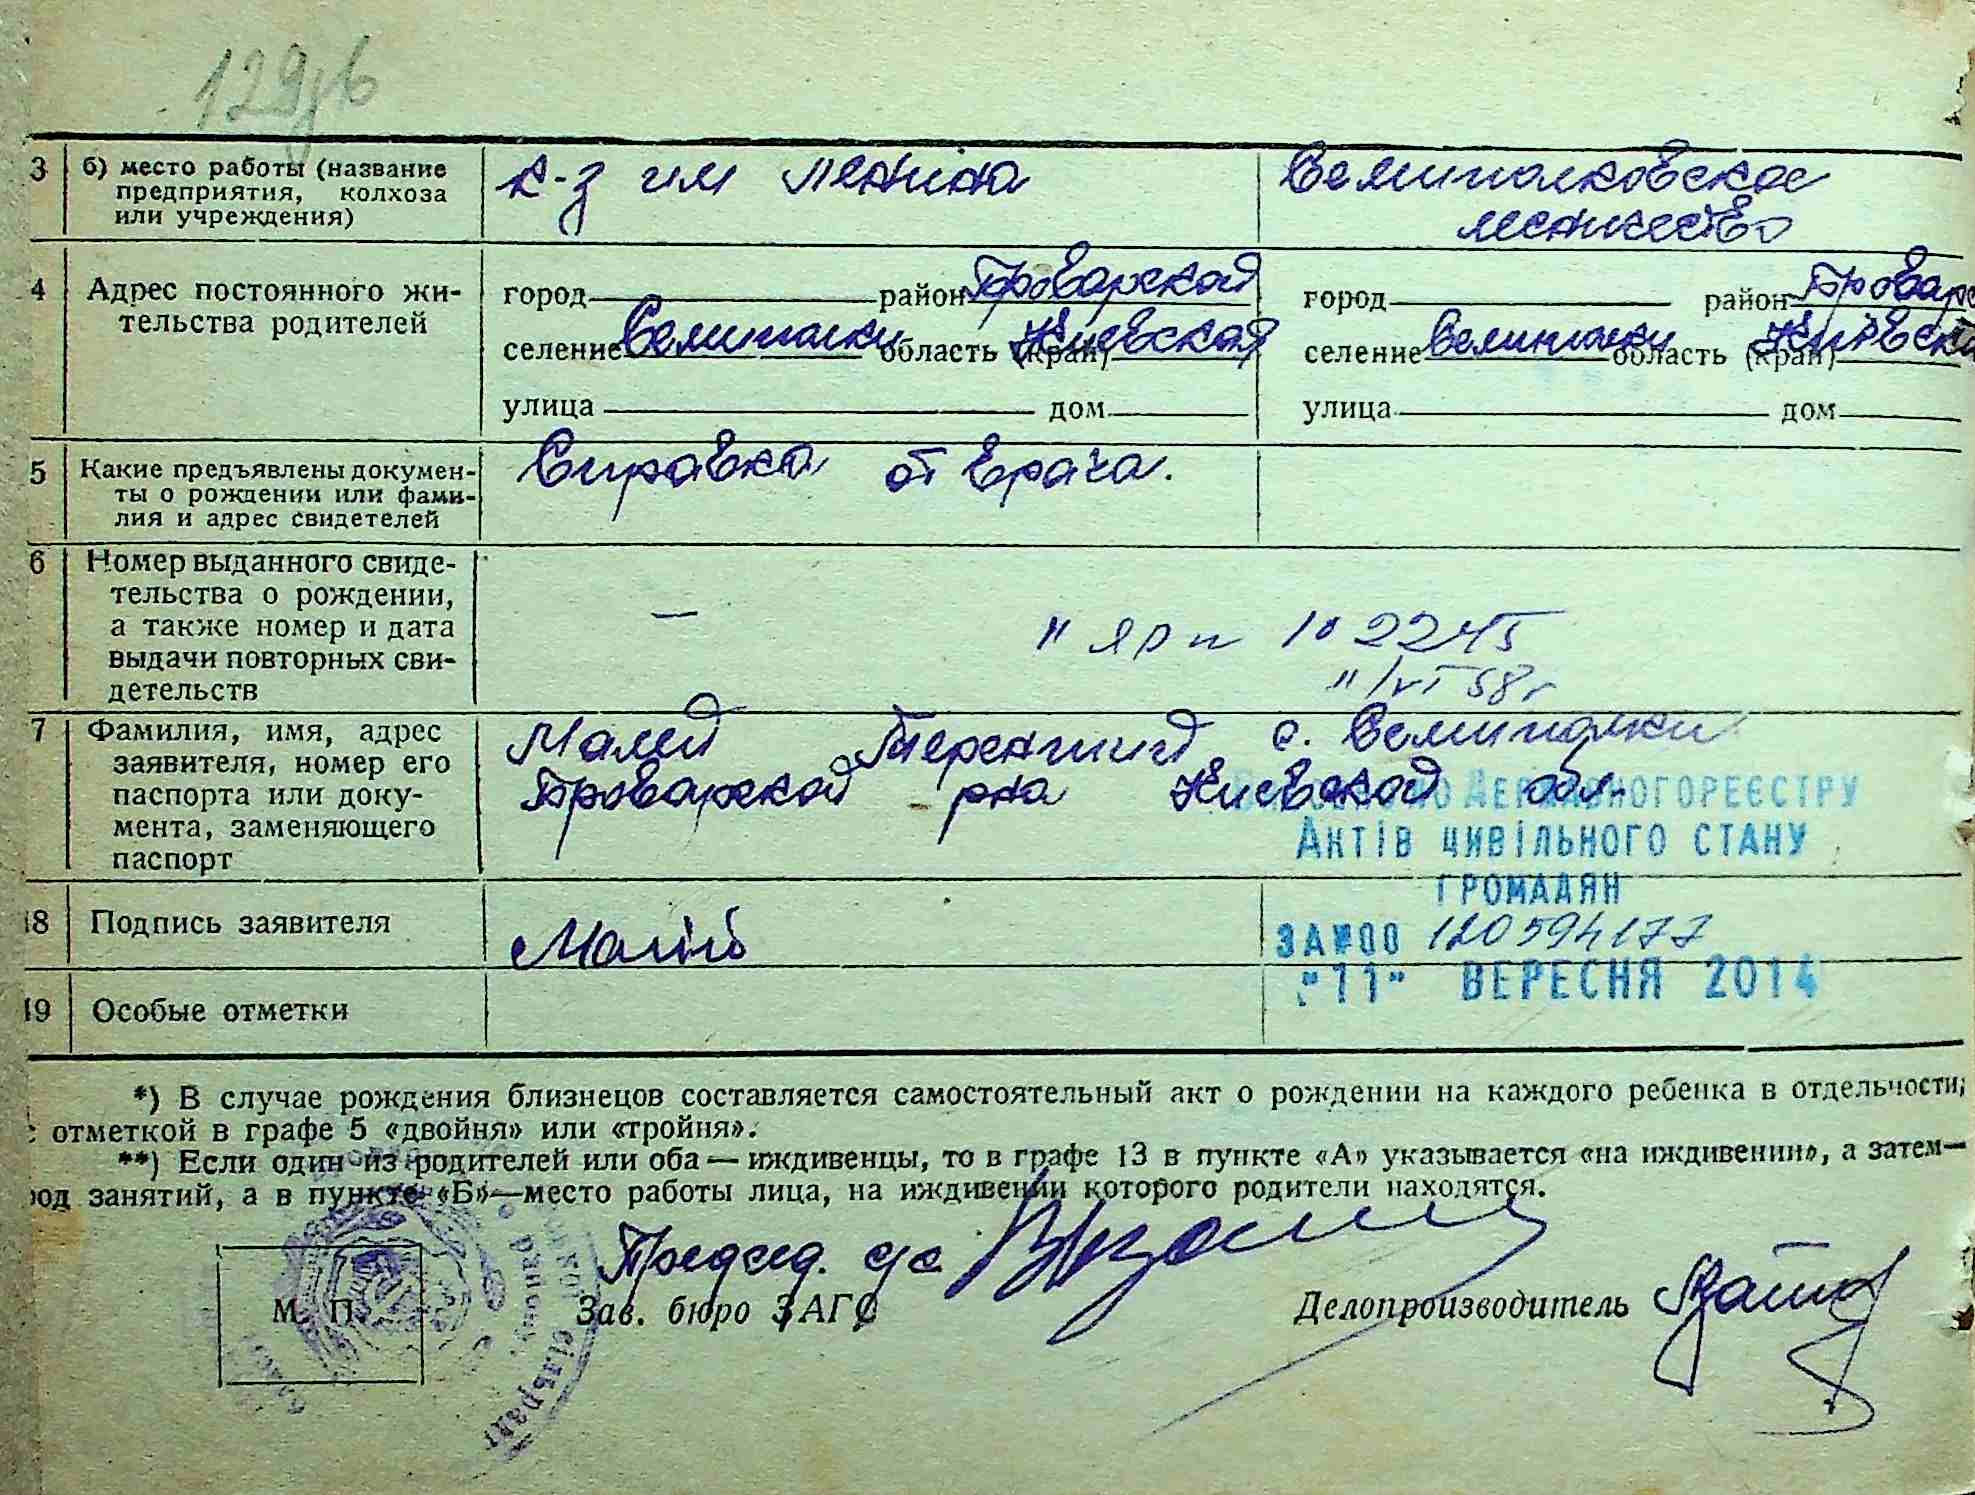 129зв
3 б) место работы (название предприятия, колхоза или учреждения) к-з им Леніна Семиполковское лесничество
4 Адрес постоянного жи-
тельства родителей
город район Броварской город район Броварс
селение Семиполки область (край) Киевская селение Семиполки область (край) Киевска
улица дом улица дом
5 Какие предъявлены докумен-
ты о рождении или фами-
лия и адрес свидетелей
Справка от врача.
6 Номер выданного свиде-
тельства о рождении,
а также номер и дата
выдачи повторных сви-
детельств
— 2245
VI 58 г
7 Фамилия, имя, адрес
заявителя, номер его
паспорта или доку-
мента, заменяющего
паспорт
Малей Терентий с. Семиполки
Броварской р-на Киевской обл.
Державного реєстру
Актів цивільного стану
громадян
за №00 120594177
"11" вересня 2014
18 Подпись заявителя
19 Особые отметки
*) В случае рождения близнецов составляется самостоятельный акт о рождении на каждого ребенка в отдельности,
с отметкой в графе 5 «двойня» или «тройня».
**) Если один из родителей или оба — иждивенцы, то в графе 13 в пункте «А» указывается «на иждивении», а затем—
род занятий, а в пункте «Б»—место работы лица, на иждивении которого родители находятся.
Председ. с/с
М. П. Зав. бюро ЗАГС Делопроизводитель